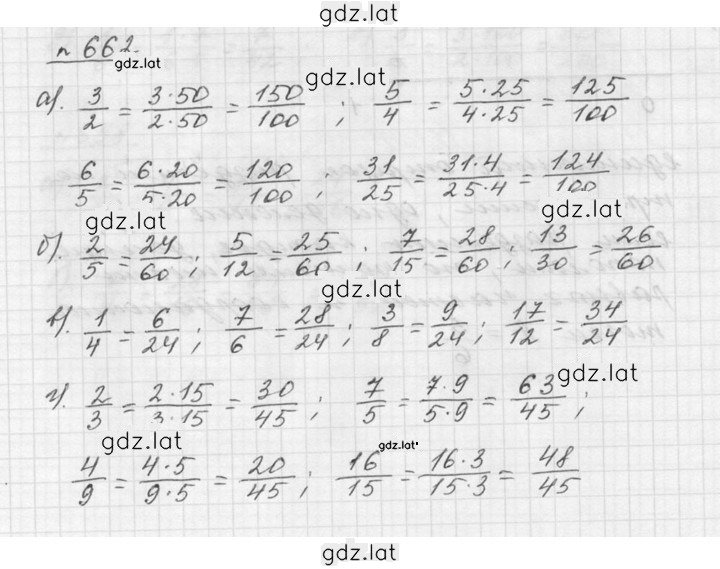 gdz.lat
n 662.
gdz.lat
а). 3/2 = 3·50/2·50 = 150/100 ; 5/4 = 5·25/4·25 = 125/100
gdz.lat
6/5 = 6·20/5·20 = 120/100 ; 31/25 = 31·4/25·4 = 124/100
gdz.lat gdz.lat
б). 2/5 = 24/60 ; 5/12 = 25/60 ; 7/15 = 28/60 ; 13/30 = 26/60
gdz.lat
в). 1/4 = 6/24 ; 7/6 = 28/24 ; 3/8 = 9/24 ; 17/12 = 34/24
г). 2/3 = 2·15/3·15 = 30/45 ; 7/5 = 7·9/5·9 = 63/45 ;
gdz.lat
gdz.lat gdz.lat
4/9 = 4·5/9·5 = 20/45 ; 16/15 = 16·3/15·3 = 48/45
gdz.lat